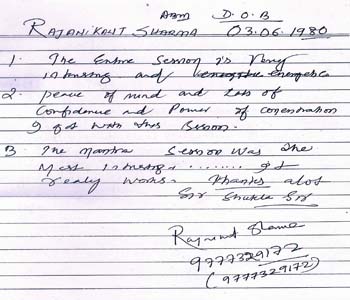 ABM D.O.B
RAJANIKANT SHARMA 03.06.1980
1. The Entire Session is Very
intersing and energetic
2. peace of mind and lots of
Confidence and Power of concentration
I got with this Session.
3 The Mantra Session was the
Most intersing ........ It
realy works. Thanks alot
Sir Shukla Sir
Rajnikant Sharma
9777329172
(9777329172)